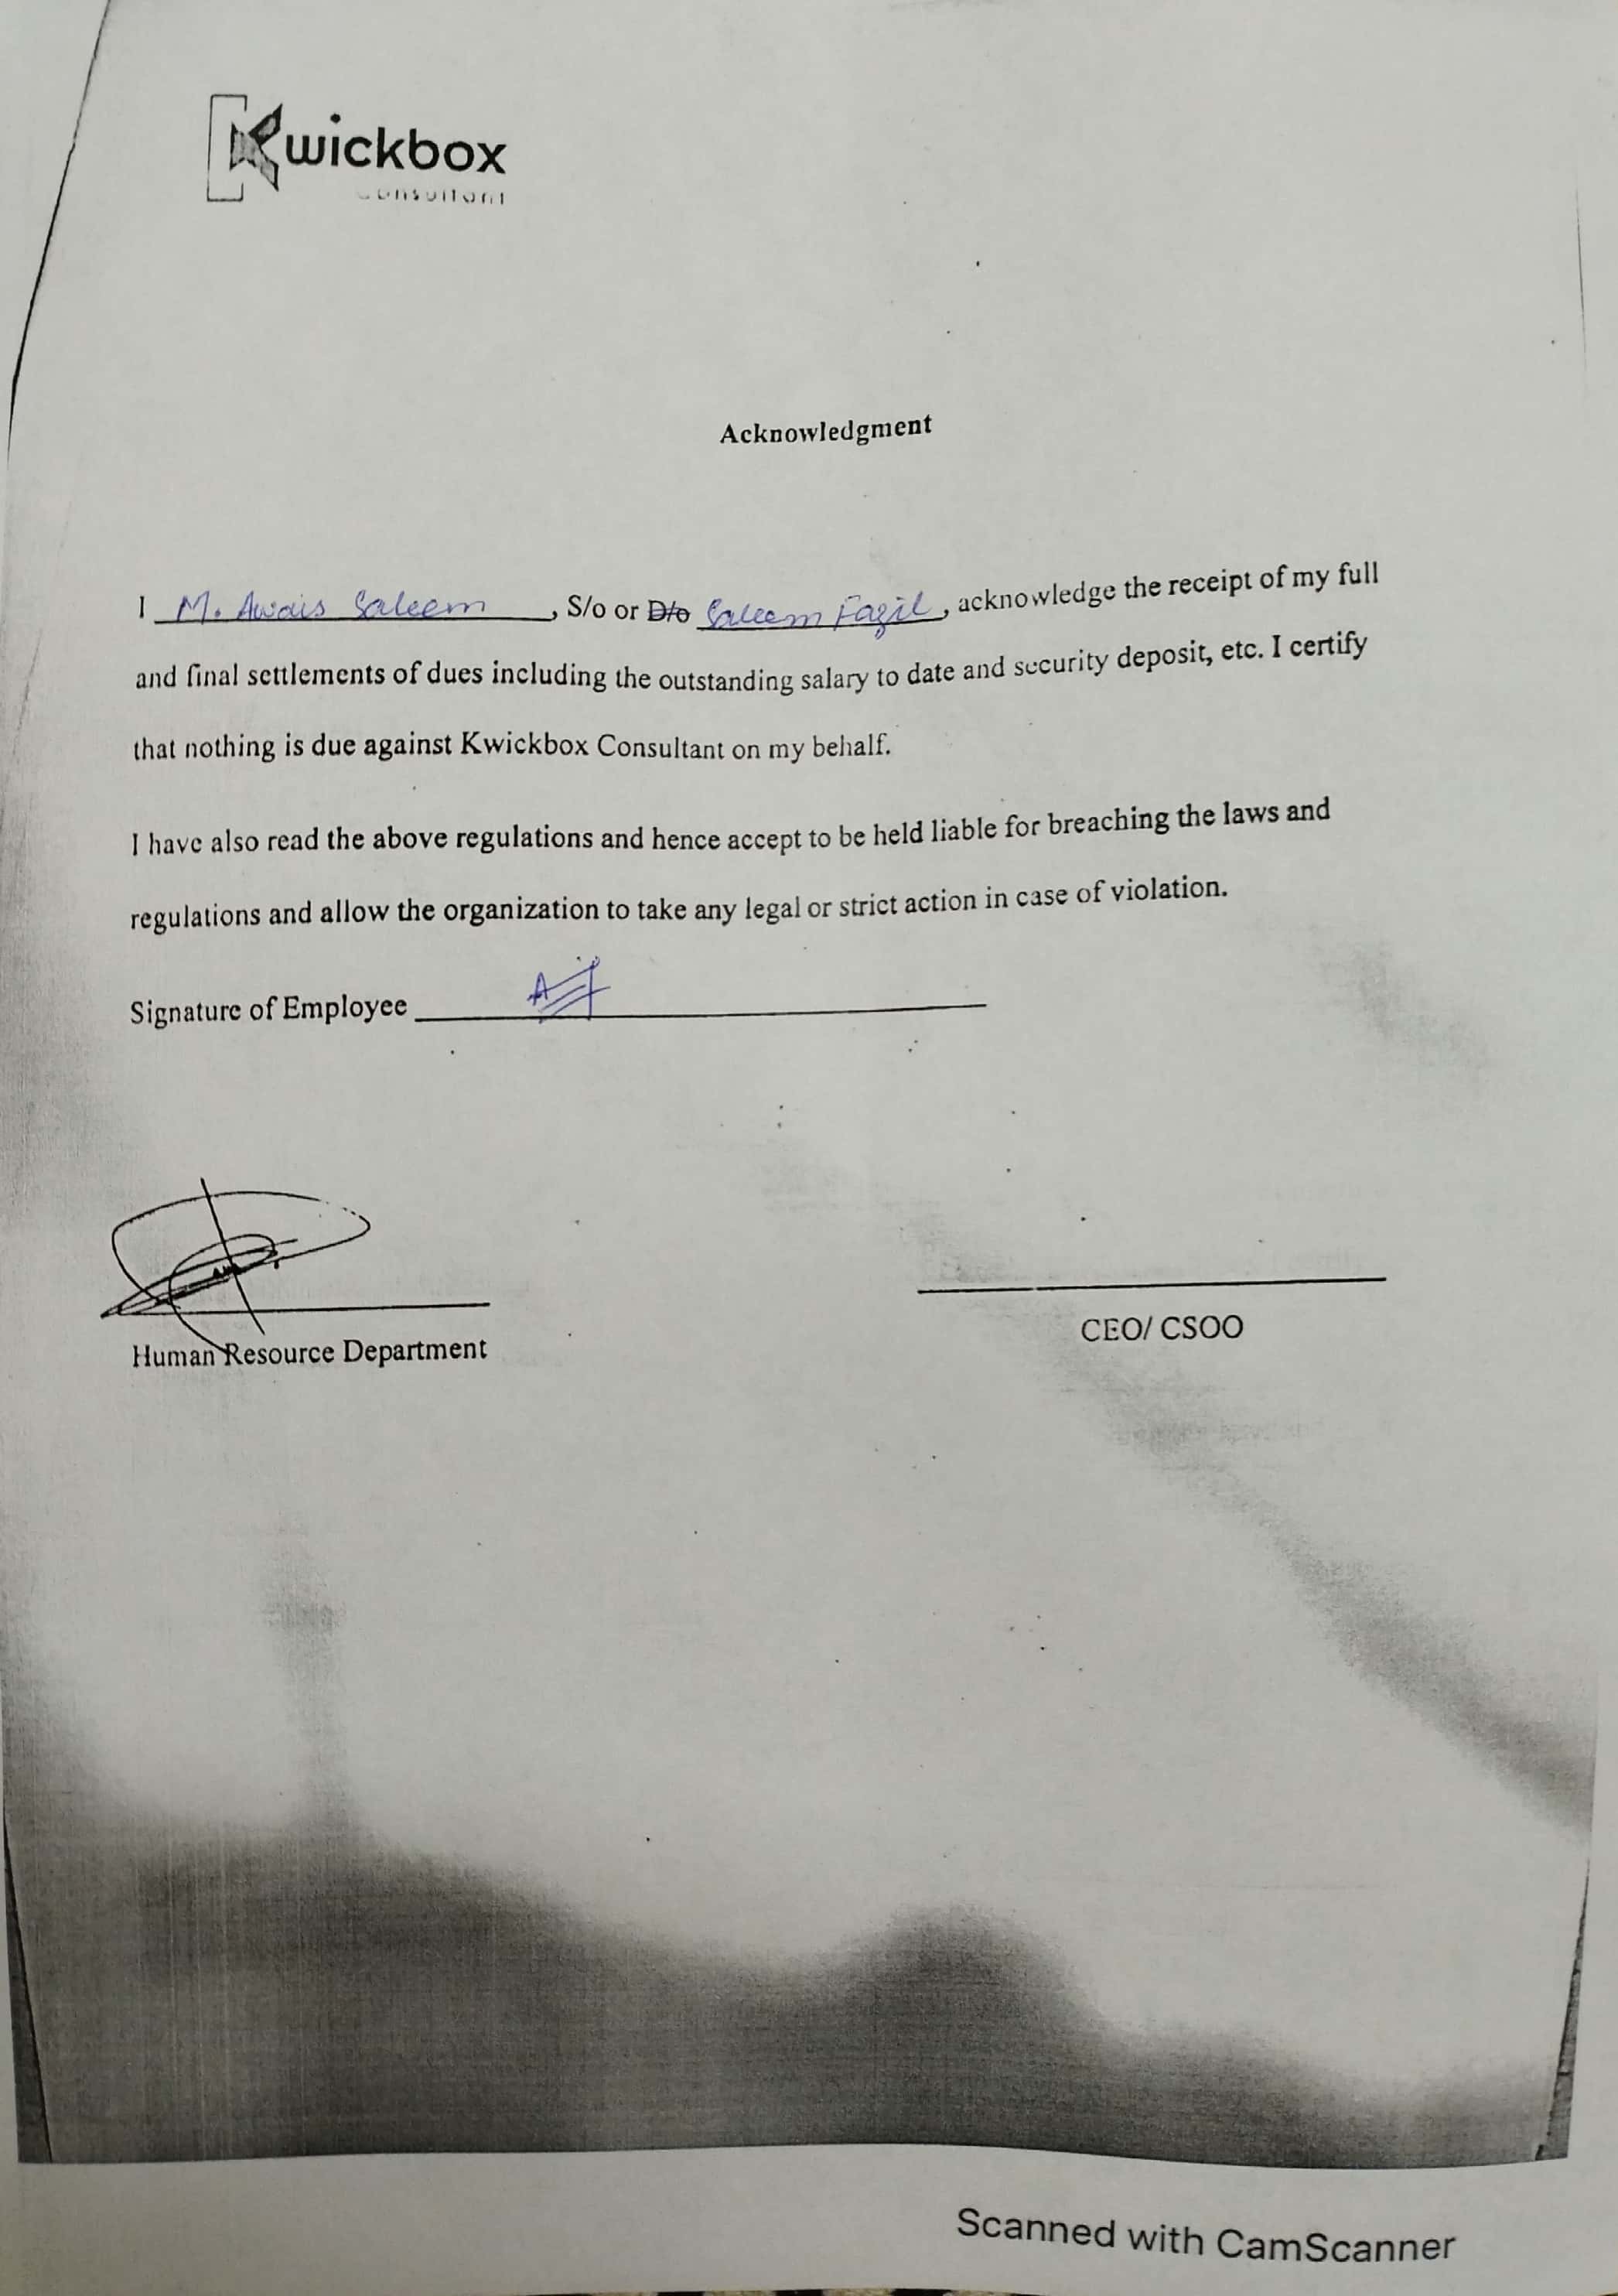 Kwickbox
Consultant
Acknowledgment
I M. Awais Saleem, S/o or D/o Saleem Fazil, acknowledge the receipt of my full
and final settlements of dues including the outstanding salary to date and security deposit, etc. I certify
that nothing is due against Kwickbox Consultant on my behalf.
I have also read the above regulations and hence accept to be held liable for breaching the laws and
regulations and allow the organization to take any legal or strict action in case of violation.
Signature of Employee
Human Resource Department
CEO/ CSOO
Scanned with CamScanner